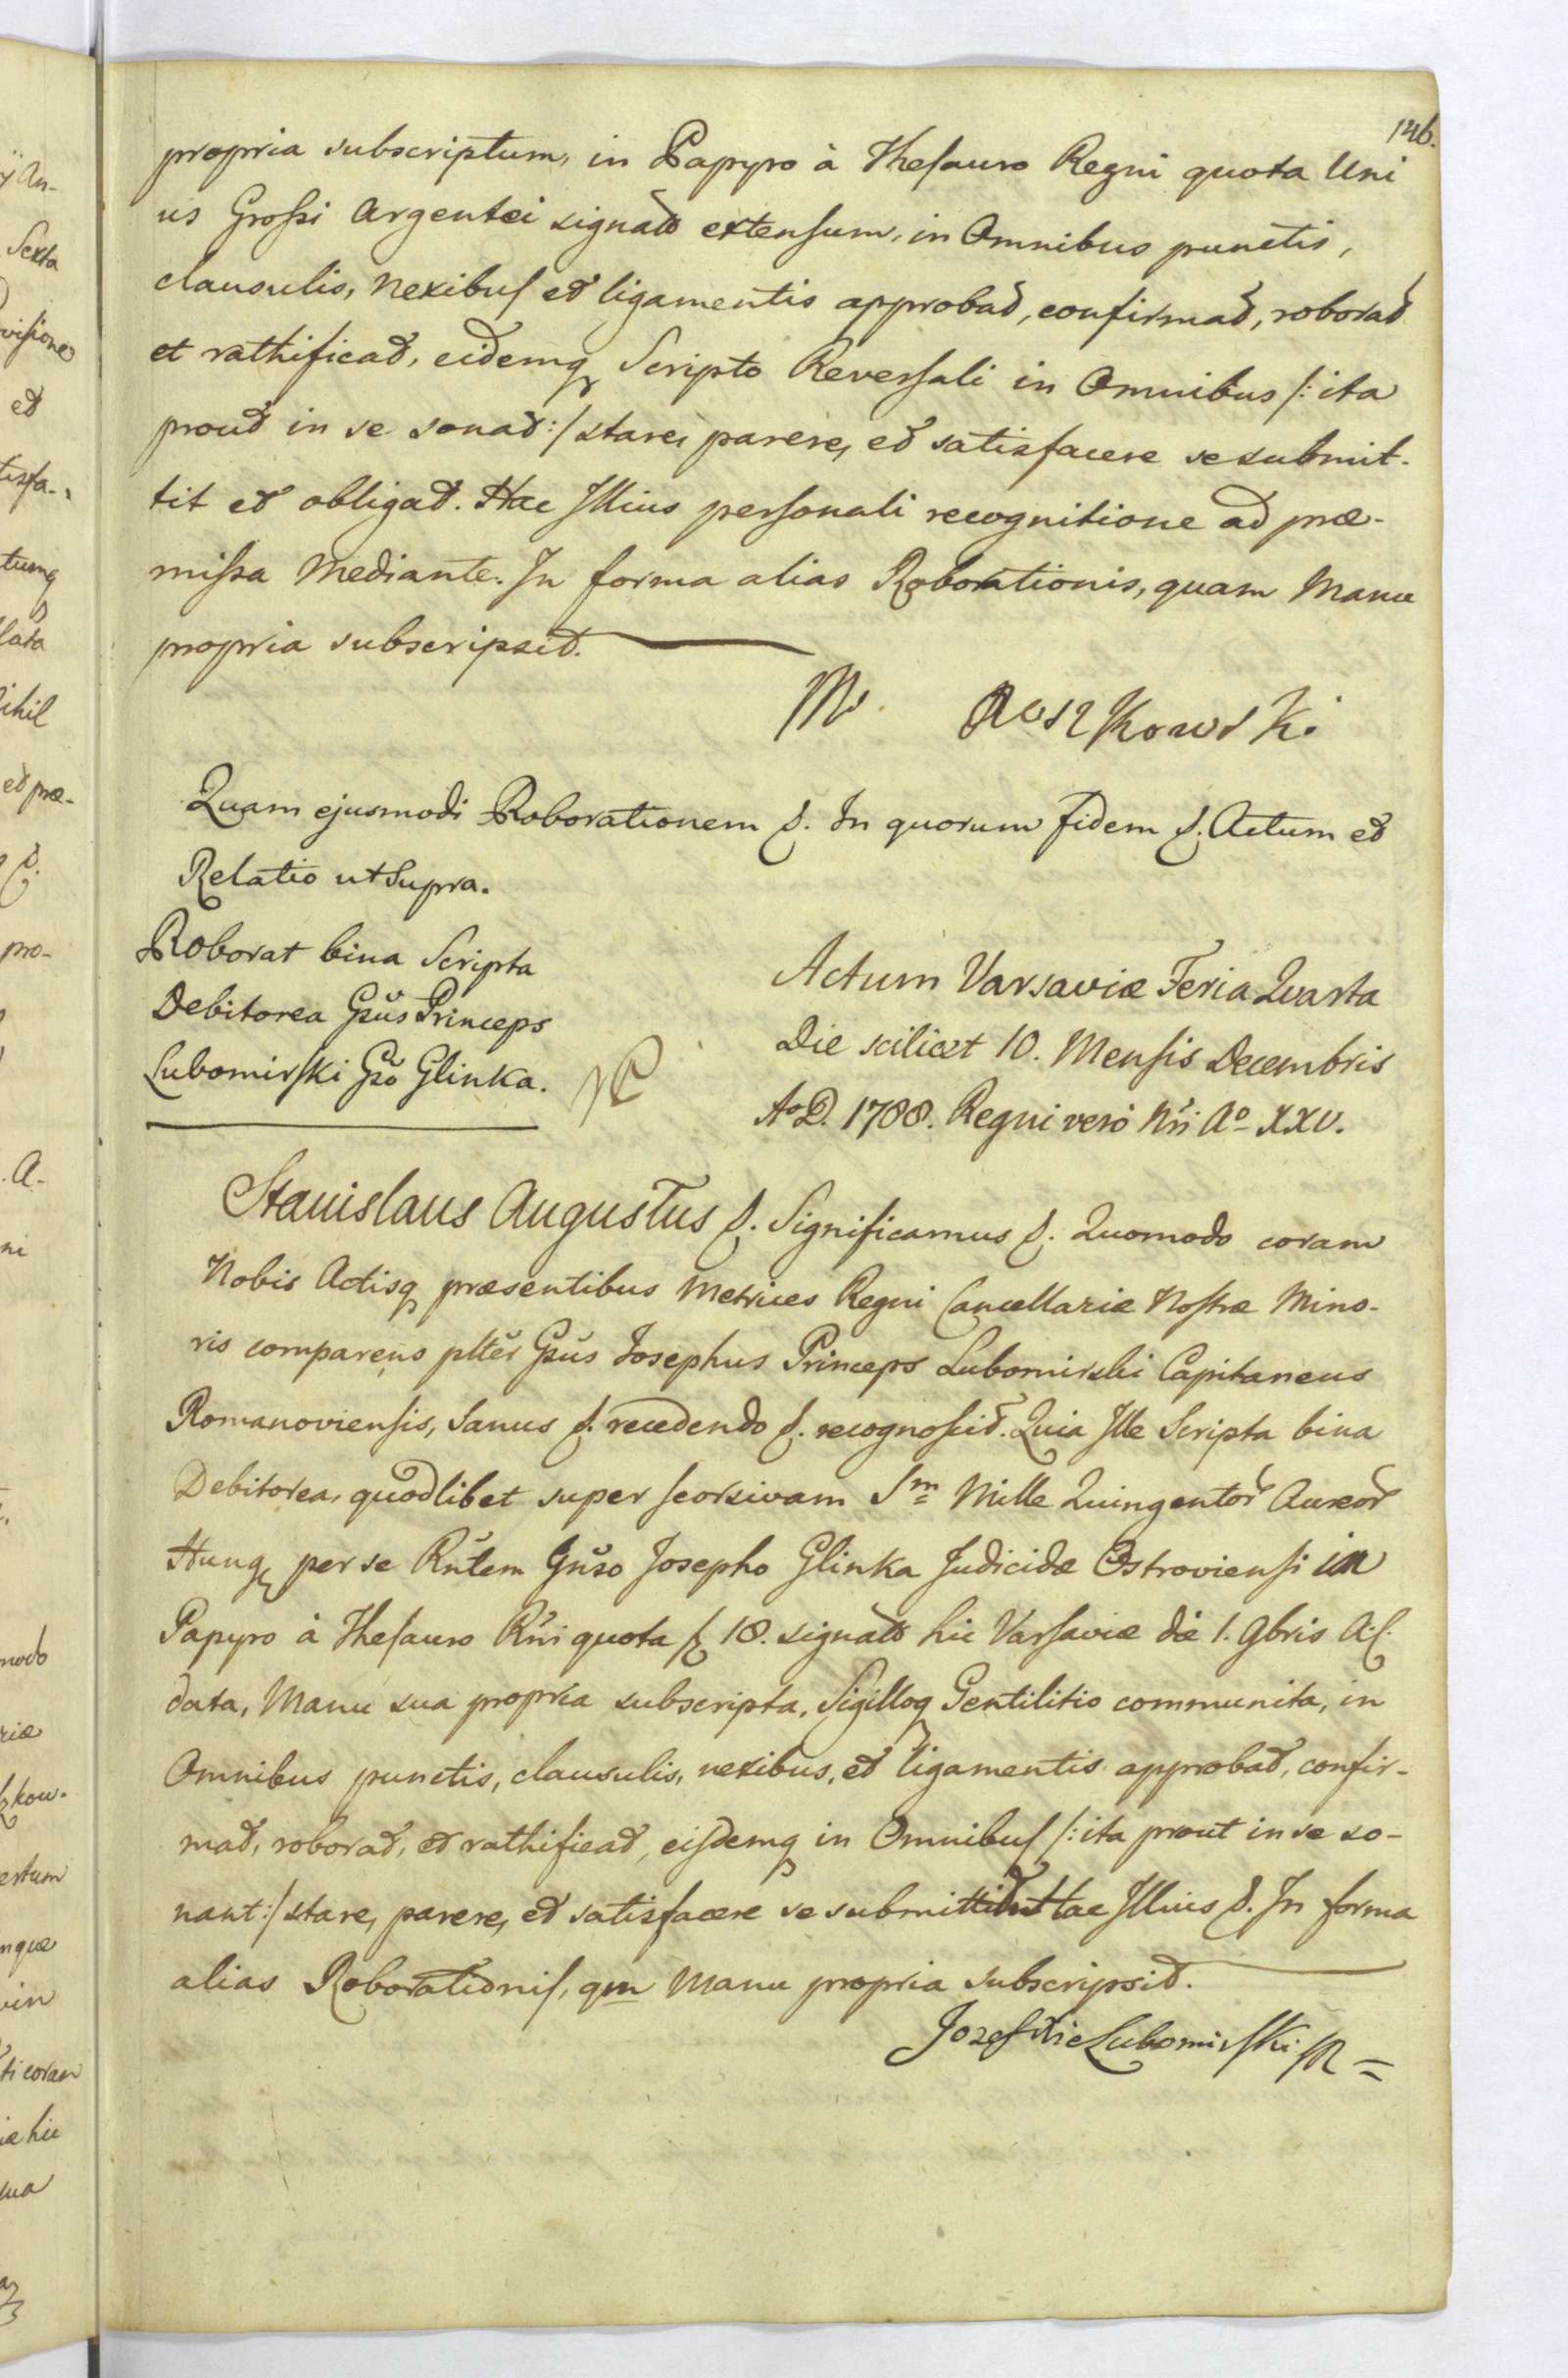 146.
propria subscriptum, in Papyro à Thesauro Regni quota Uni
us Grossi Argentei signato extensum, in Omnibus punctis,
clausulis, nexibus et ligamentis approbat, confirmat, roborat
et rathificat, eidemq Scripto Reversali in Omnibus /: ita
prout in se sonat :/ stare, parere, et satisfacere se submit-
tit et obligat. Hac Illius personali recognitione ad præ-
missa Mediante. In forma alias Roborationis, quam Manu
propria subscripsit.
Quam ejusmodi Roborationem &. In quorum fidem &. Actum et
Relatio ut Supra.
Roborat bina Scripta
Debitorea Gsus Princeps
Lubomirski Gso Glinka.
Actum Varsaviæ Feria Quarta
Die scilicet 10. Mensis Decembris
Ao D. 1788. Regni verò Nri Ao XXV.
Stanislaus Augustus &. Significamus &. Quomodo coram
Nobis Actisq præsentibus Metrices Regni Cancellariæ Nostræ Mino-
ris comparens plter Gsus Josephus Princeps Lubomirski Capitaneus
Romanoviensis, Sanus &. recedendo &. recognoscit. Quia Ille Scripta bina
Debitorea, quodlibet super seorsivam Sm Mille Quingentor Aureor
Hung per se Rntem Gnso Josepho Glinka Judicidæ Ostroviensi in
Papyro à Thesauro Rni quota f 18. signato hic Varsaviæ die 1. 9bris A. c.
data, Manu sua propria subscripta, Sigilloq Gentilitio communita, in
Omnibus punctis, clausulis, nexibus, et ligamentis approbat, confir-
mat, roborat, et rathificat, eisdemq in Omnibus /: ita prout in se so-
nant :/ stare, parere, et satisfacere se submittit Hac Illius &. In forma
alias Roborationis, qm Manu propria subscripsit.
Jozef Xie Lubomirski